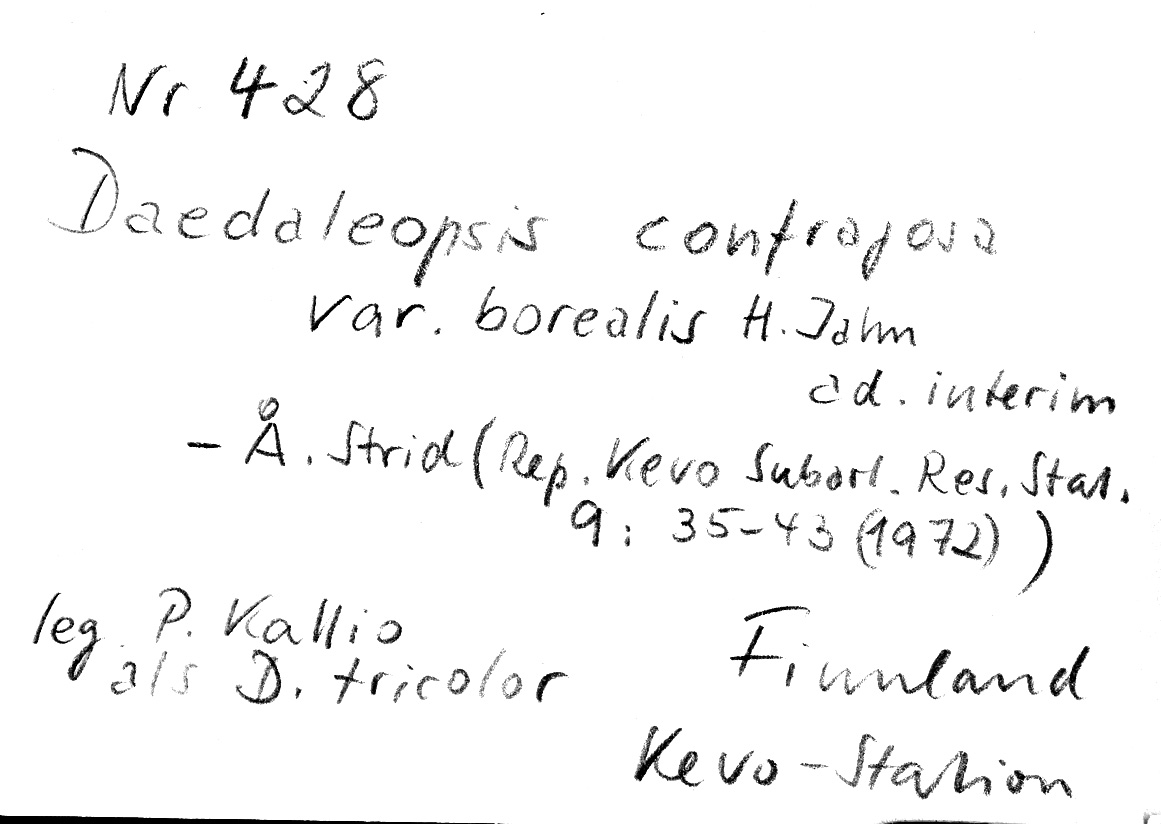 Nr 428
Daedaleopsis confragosa
var. borealis H. Jahn
ad. interim
- Å. Strid (Rep. Kevo Subart. Res. Stat.
9: 35-43 (1972))
leg. P. Kallio
als D. tricolor
Finnland
Kevo-Station